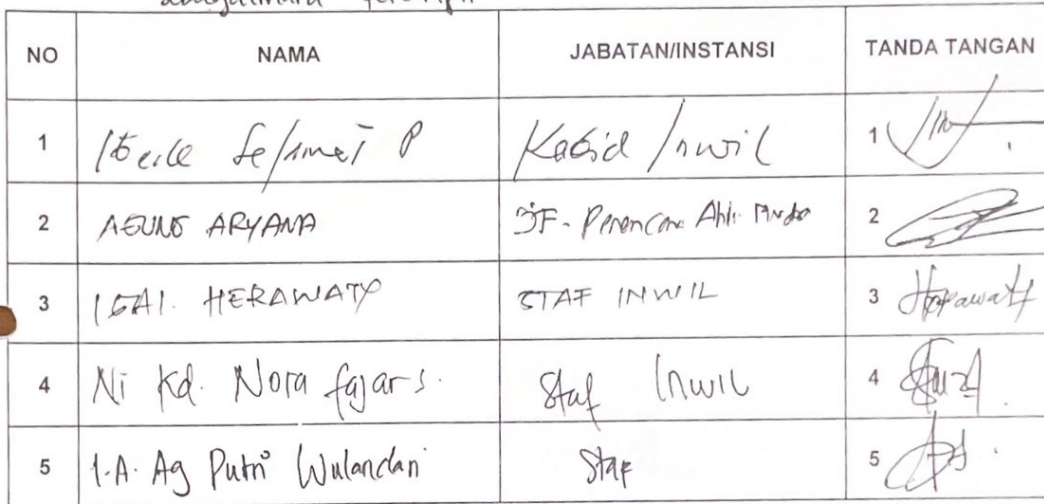 NO NAMA JABATAN/INSTANSI TANDA TANGAN
1 Kabid Inwil 1
2 AGUNG ARYANA JF. Perencana Ahli Muda 2
3 IGAI. HERAWATY STAF INWIL 3 Herawaty
4 Ni Kd. Nora fajar s. Staf Inwil 4
5 I.A. Ag Putri Wulandari Staf 5